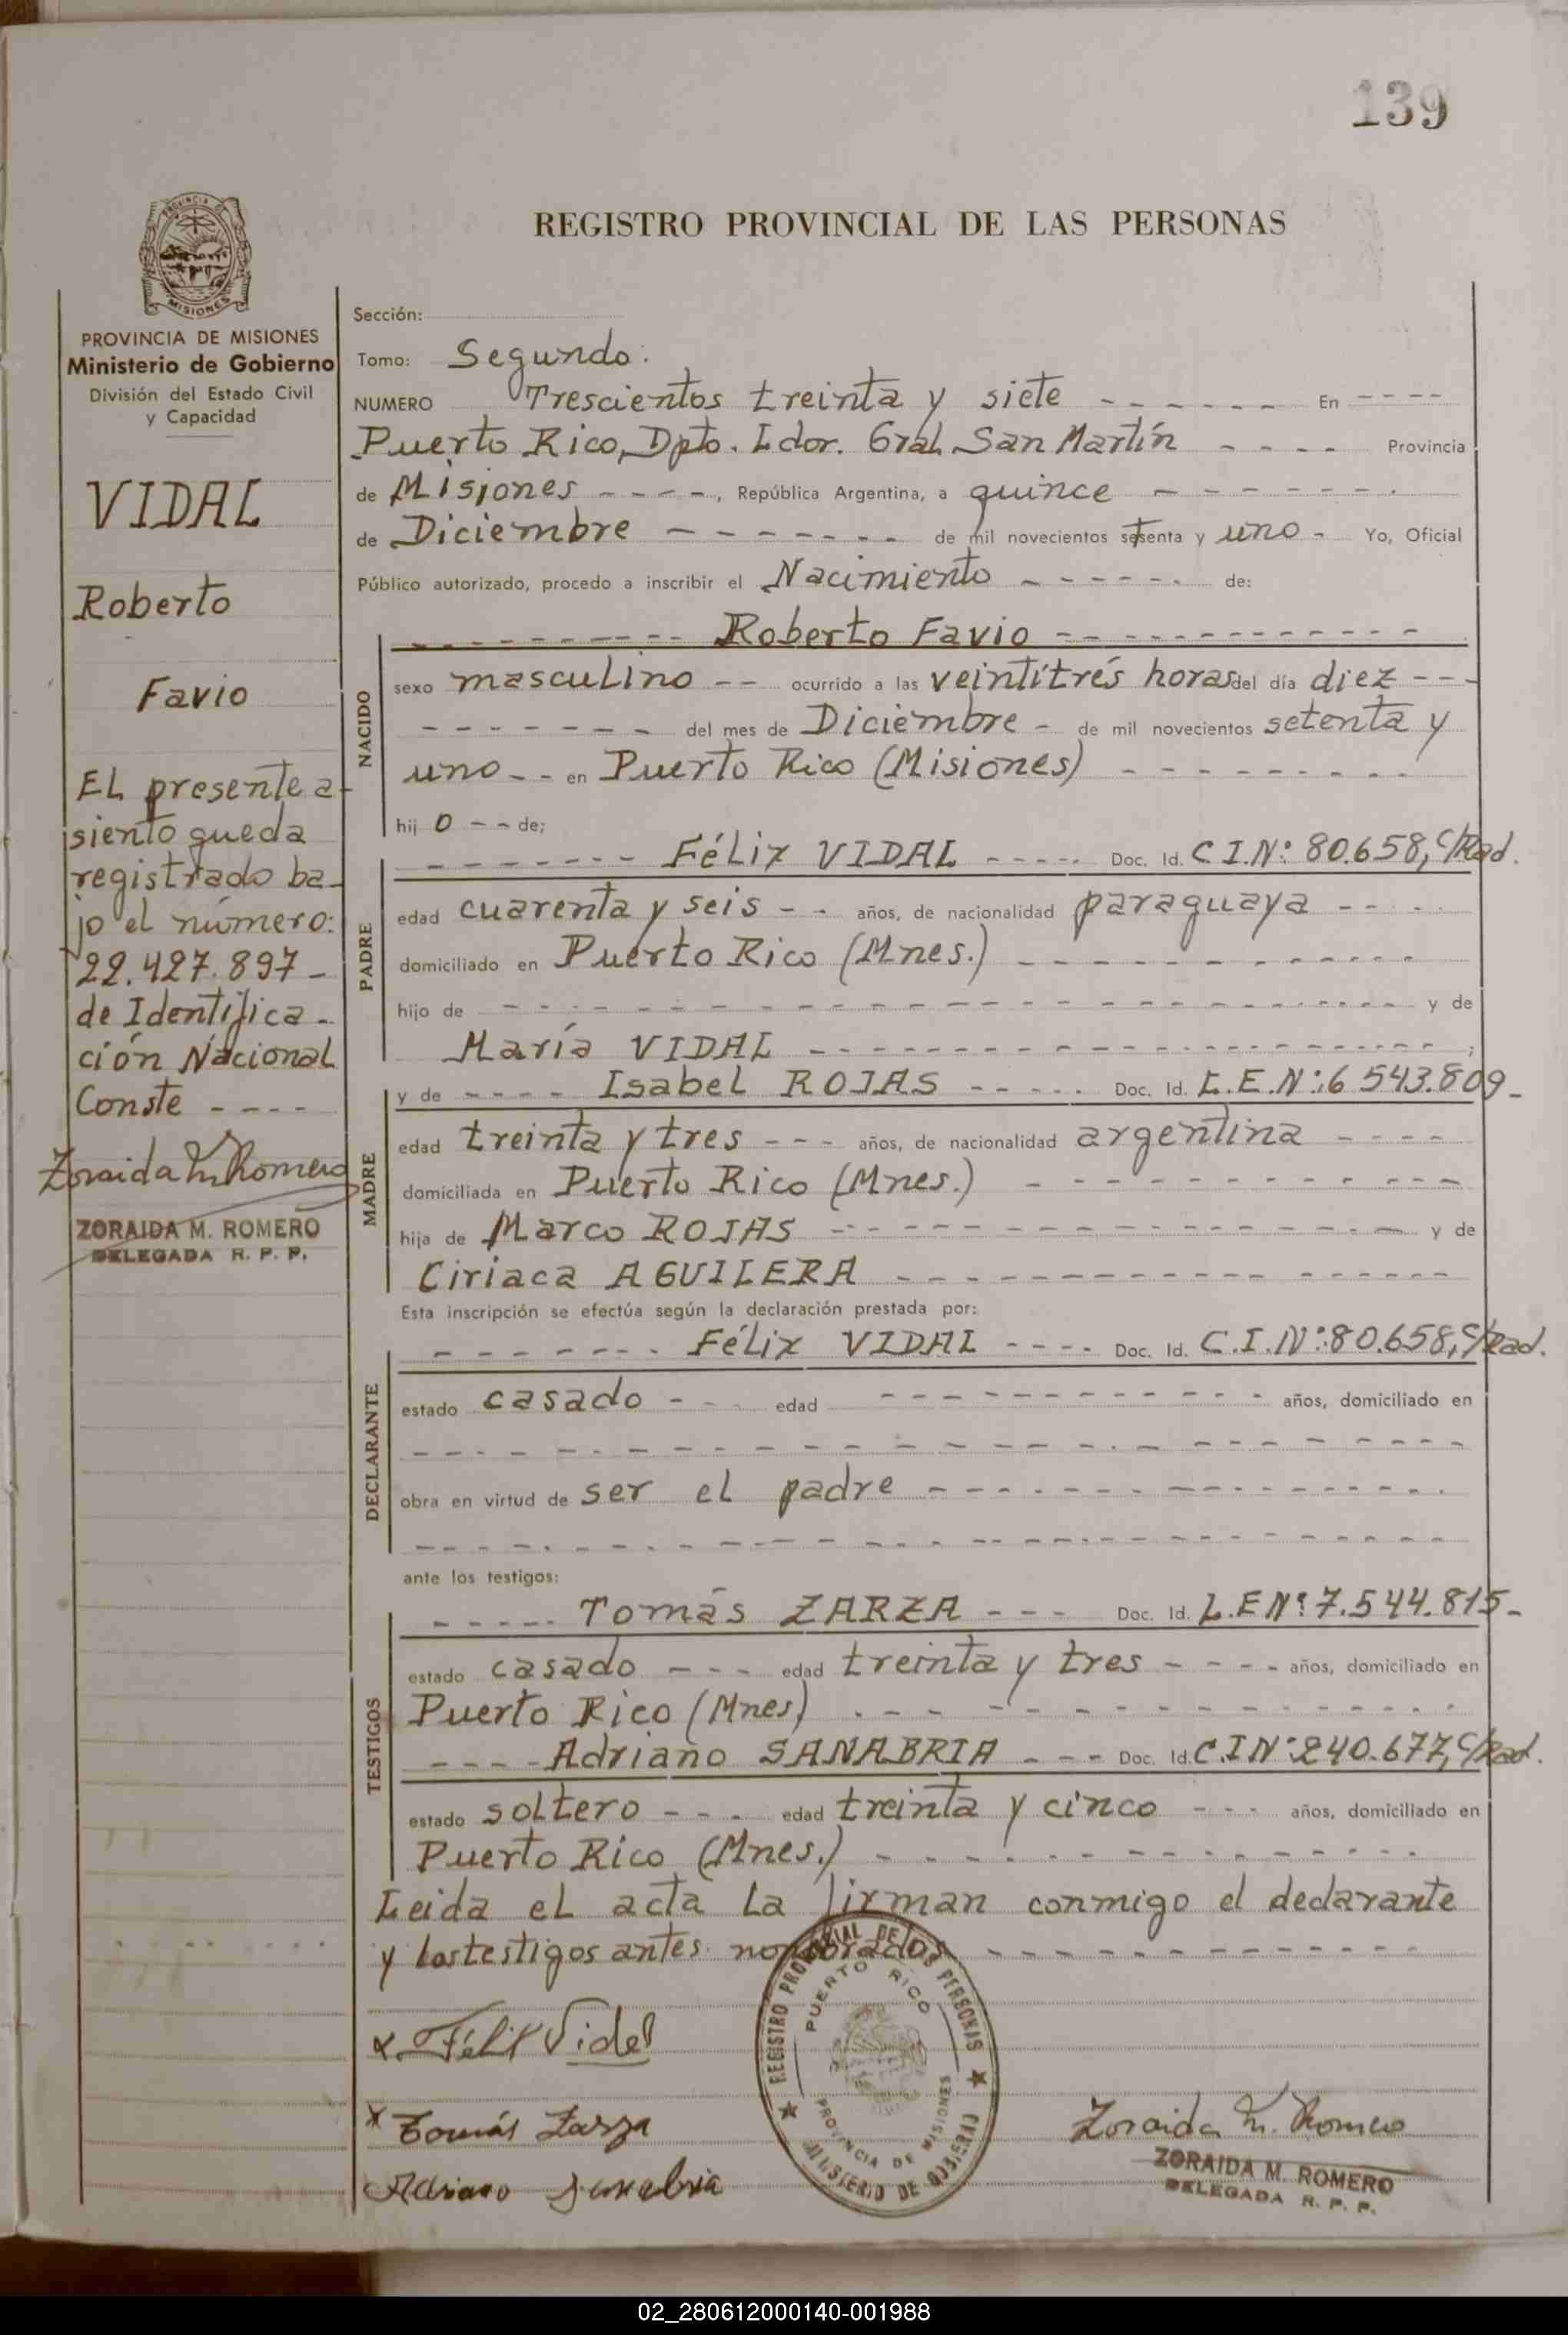 139
REGISTRO PROVINCIAL DE LAS PERSONAS
PROVINCIA DE MISIONES
Ministerio de Gobierno
División del Estado Civil
y Capacidad
VIDAL
Roberto
Favio
EL presente a-
siento queda
registrado ba-
jo el número:
22.427.897-
de Identifica-
ción Nacional
Conste ----
Zoraida M. Romero
ZORAIDA M. ROMERO
DELEGADA R. P. P.
Sección:
Tomo: Segundo.
NUMERO Trescientos treinta y siete ------ En ----
Puerto Rico, Dpto. Ldor. Gral. San Martín ---- Provincia
de Misiones ----, República Argentina, a quince -------
de Diciembre ------- de mil novecientos setenta y uno - Yo, Oficial
Público autorizado, procedo a inscribir el Nacimiento ------ de:
NACIDO
---------- Roberto Favio ------------
sexo masculino -- ocurrido a las veintitrés horas del día diez ---
------- del mes de Diciembre - de mil novecientos setenta y
uno -- en Puerto Rico (Misiones) ---------
hij o -- de;
PADRE
------- Félix VIDAL ----- Doc. Id. C I.N: 80.658, C/Rad.
edad cuarenta y seis -- años, de nacionalidad paraguaya -----
domiciliado en Puerto Rico (Mnes.) ------------
hijo de -------------------- y de
María VIDAL -------------------- ;
MADRE
y de ---- Isabel ROJAS ----- Doc. Id. L.E.N: 6 543.809-
edad treinta y tres --- años, de nacionalidad argentina ----
domiciliada en Puerto Rico (Mnes.) ------------
hija de Marco ROJAS --------------- y de
Ciriaca AGUILERA ----------------
Esta inscripción se efectúa según la declaración prestada por:
DECLARANTE
------- Félix VIDAL ---- Doc. Id. C.I.N: 80.658, C/Rad.
estado casado --- edad ------------ años, domiciliado en
----------------------
obra en virtud de ser el padre ---------------
----------------------
ante los testigos:
TESTIGOS
----- Tomás ZARZA --- Doc. Id. L.E N: 7.544.815-
estado casado --- edad treinta y tres ---- años, domiciliado en
Puerto Rico (Mnes) --------------
---- Adriano SANABRIA --- Doc. Id. C.I N: 240.677, C/Rad.
estado soltero --- edad treinta y cinco --- años, domiciliado en
Puerto Rico (Mnes.) --------------
Leida el acta la firman conmigo el declarante
y los testigos antes nombrados ------------
x Félix Vidal
x Tomás Zarza
Adriano Sanabria
REGISTRO PROVINCIAL DE LAS PERSONAS
PUERTO RICO
PROVINCIA DE MISIONES
MINISTERIO DE GOBIERNO
Zoraida M. Romero
ZORAIDA M. ROMERO
DELEGADA R. P. P.
02_280612000140-001988